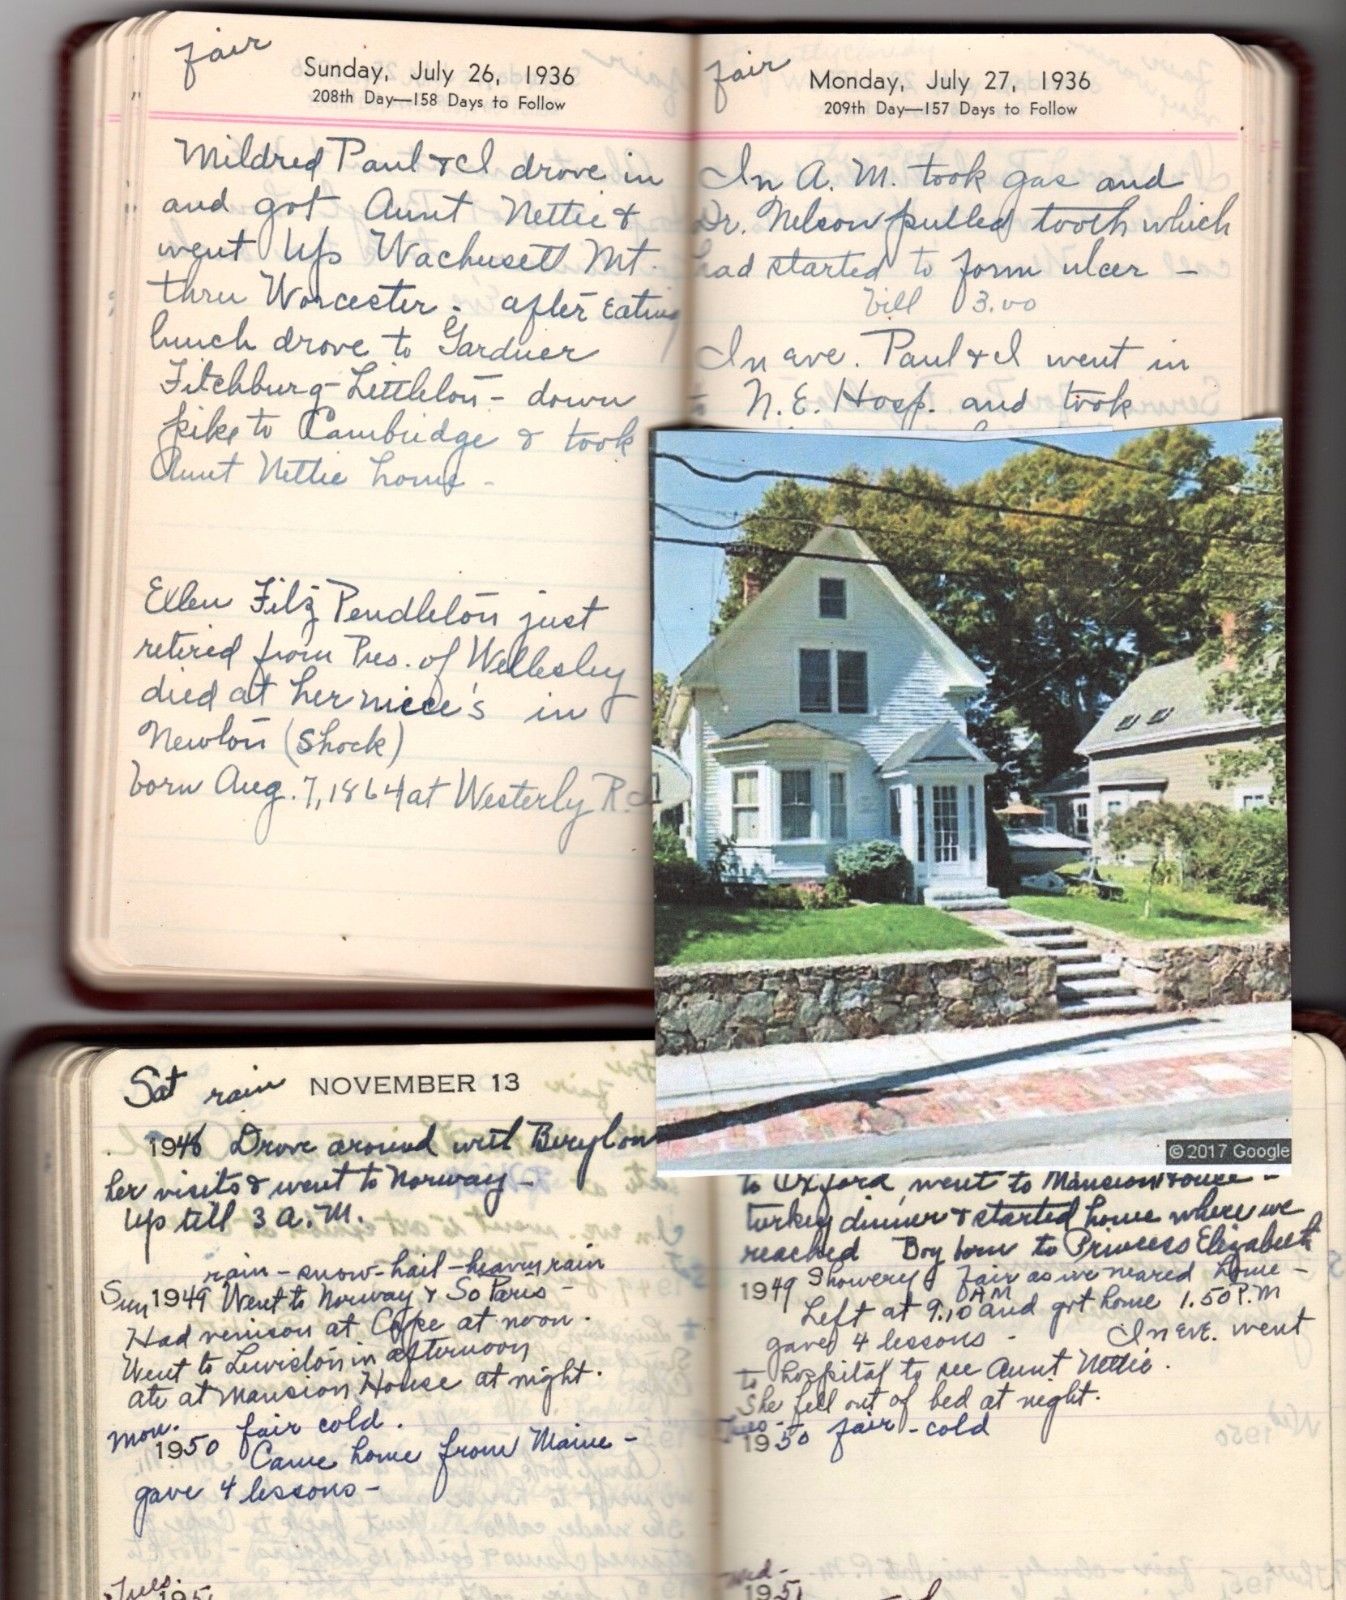 fair
Sunday, July 26, 1936
208th Day—158 Days to Follow
Mildred Paul & I drove in
and got Aunt Nettie &
went up Wachusett Mt.
thru Worcester. after eating
lunch drove to Gardner
Fitchburg-Littleton - down
pike to Cambridge & took
Aunt Nettie home -
Ellen Fitz Pendleton just
retired from Pres. of Wellesley
died at her niece's in
Newton (shock)
born Aug. 7, 1864 at Westerly R.I.
fair
Monday, July 27, 1936
209th Day—157 Days to Follow
In A. M. took gas and
Dr. Nelson pulled tooth which
had started to form ulcer -
Bill 3.00
In eve. Paul & I went in
to N. E. Hosp. and took
© 2017 Google
Sat rain NOVEMBER 13
1948 Drove around with Beryl on
her visits & went to Norway -
Up till 3 A.M.
rain - snow - hail - heavy rain
Sun 1949 Went to Norway & So Paris -
Had venison at Cafe at noon.
Went to Lewiston in afternoon
ate at Mansion House at night.
Mon. fair cold.
1950 Came home from Maine -
gave 4 lessons -
Tues.
1951
to Oxford, went to Mansion House -
turkey dinner & started home where we
reached Boy born to Princess Elizabeth
1949 Showery Fair as we neared home -
Left at 9.10 AM and got home 1.50 P.M
gave 4 lessons - In eve. went
to hospital to see Aunt Nettie.
She fell out of bed at night.
Tues -
1950 fair - cold
Wed -
1951